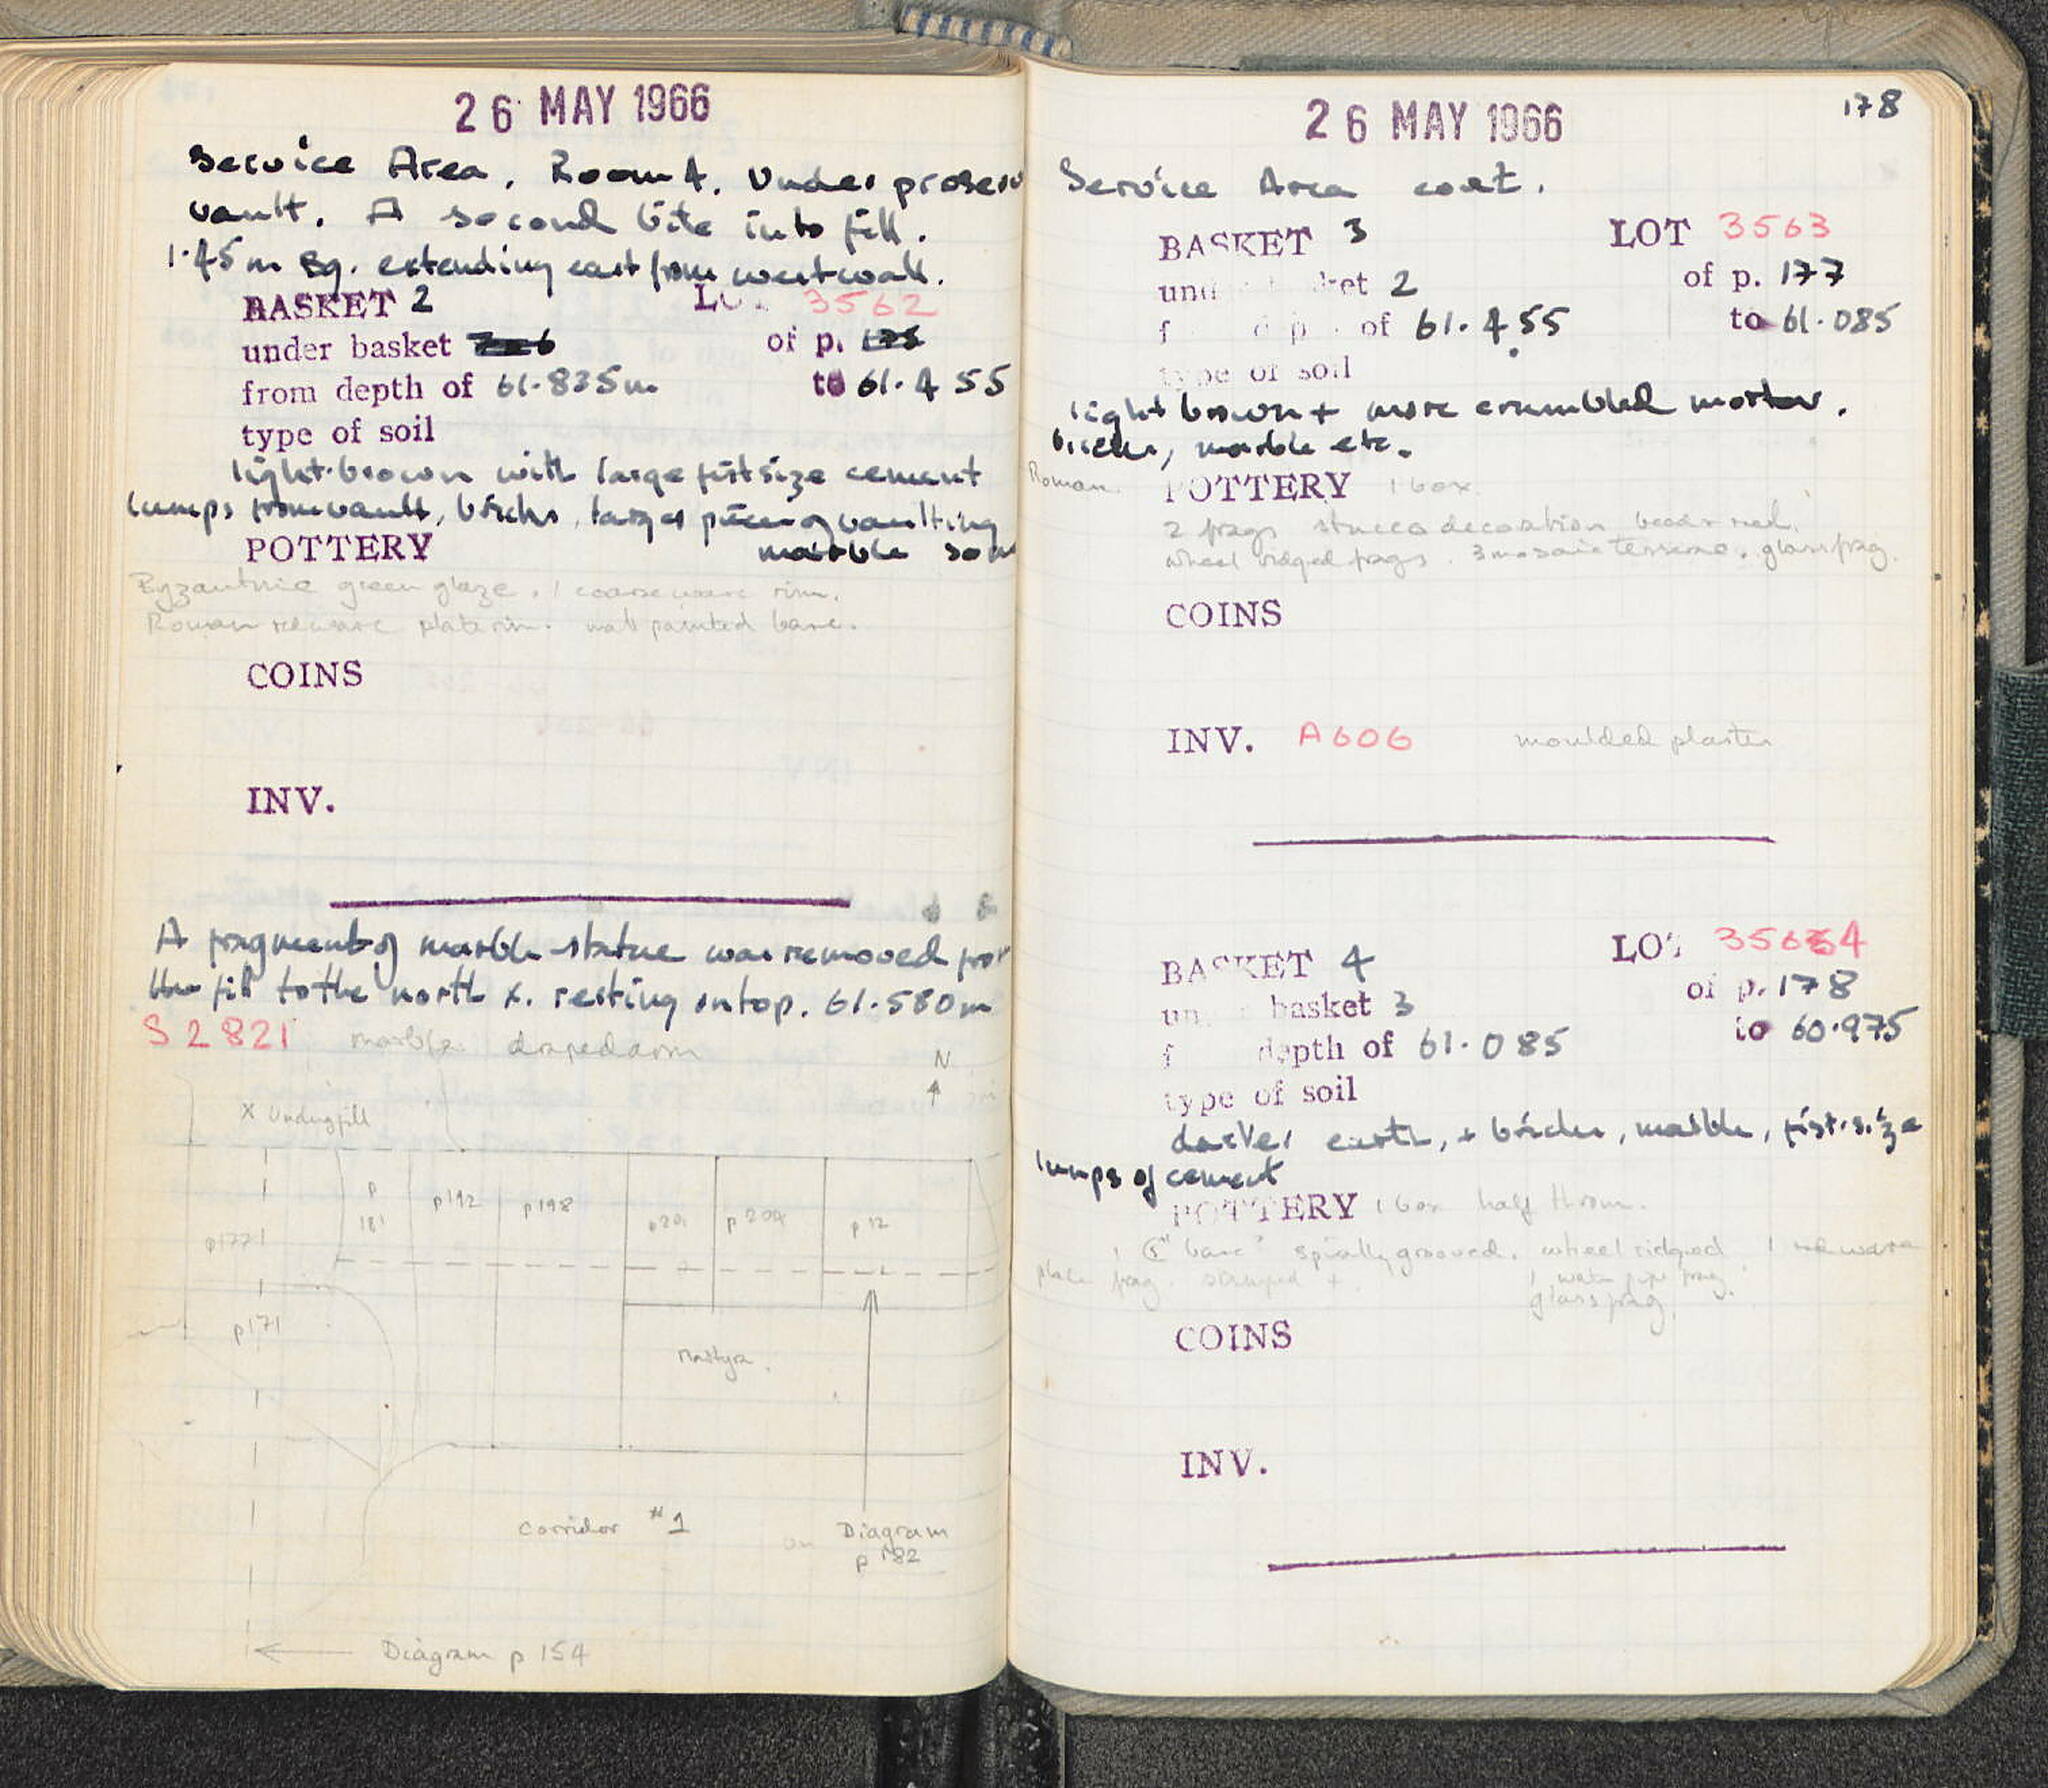 26 MAY 1966
Service Area, Room 4. Under preserv
vault. A second bite into fill.
1.45m sq. extending east from west wall.
BASKET 2 LO 3562
under basket of p.
from depth of 61.835m to 61.455
type of soil
light-brown with large fist size cement
lumps from vault, bricks, larger pieces of vaulting
POTTERY marble som
Byzantine green glaze. 1 coarse ware rim.
Roman redware plate rim. matt painted base.
COINS
INV.
A fragment of marble statue was removed from
the fill to the north x. resting on top. 61.580m
S 2821 marble draped arm
N
X Undug fill
p 181
p192
p198
p201
p204
p 12
p177
p171
Martyr.
Corridor #1
on Diagram
p 182
Diagram p 154
178
26 MAY 1966
Service Area cont.
BASKET 3 LOT 3563
und ket 2 of p. 177
f d p of 61.455 to 61.085
type of soil
light brown + more crumbled mortar.
bricks, marble etc.
Roman. POTTERY 1 box
2 frags stucco decoration bead & reel.
wheel ridged frags. 3 mosaic tesserae. glass frag.
COINS
INV. A606 moulded plaster
BASKET 4 LOT 3564
un basket 3 of p. 178
f depth of 61.085 to 60.975
type of soil
darker earth, + bricks, marble, fist-size
lumps of cement
POTTERY 1 box half Hrom.
1 base? spirally grooved. wheel ridged. 1 redware
plate frag. stamped +. 1 water pipe frag.
glass frag.
COINS
INV.